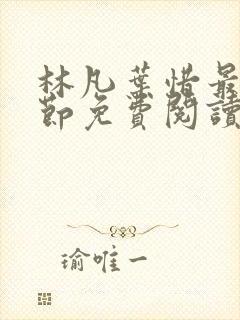 林凡葉惜最
節免費閱讀
瑜唯一